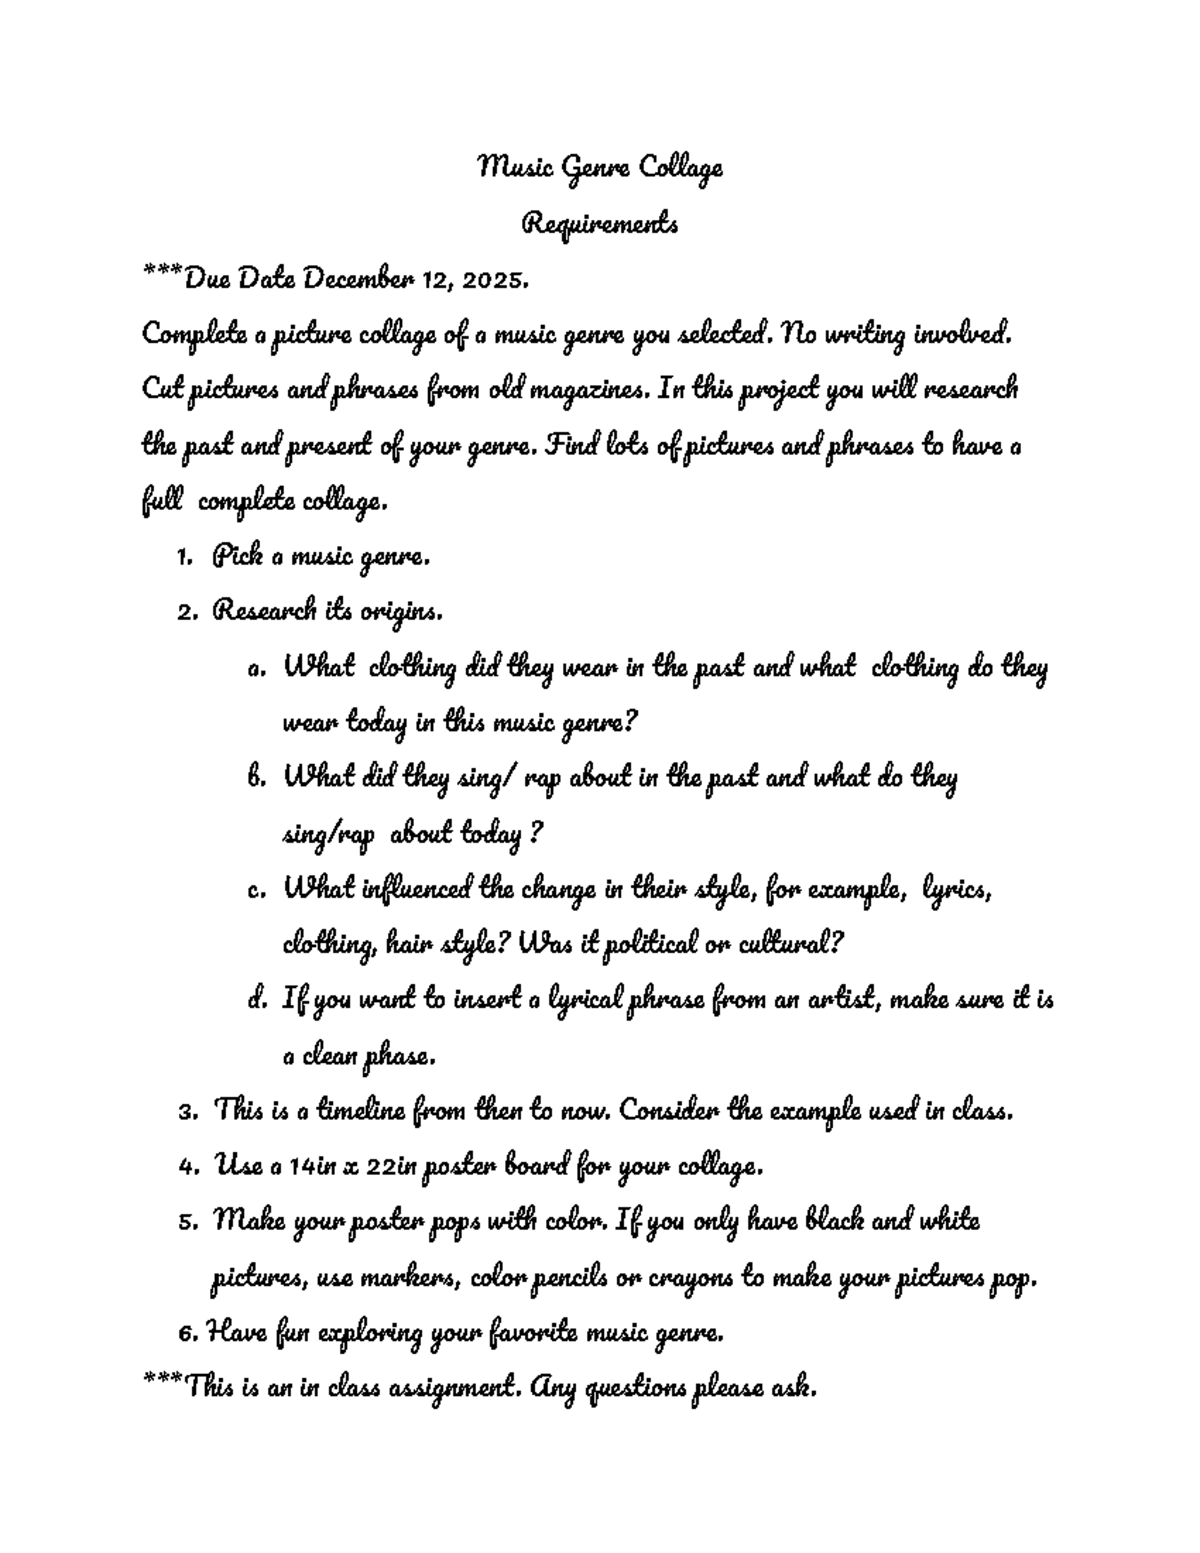 Music Genre Collage
Requirements
***Due Date December 12, 2025.
Complete a picture collage of a music genre you selected. No writing involved.
Cut pictures and phrases from old magazines. In this project you will research
the past and present of your genre. Find lots of pictures and phrases to have a
full complete collage.
1. Pick a music genre.
2. Research its origins.
a. What clothing did they wear in the past and what clothing do they
wear today in this music genre?
b. What did they sing/ rap about in the past and what do they
sing/rap about today ?
c. What influenced the change in their style, for example, lyrics,
clothing, hair style? Was it political or cultural?
d. If you want to insert a lyrical phrase from an artist, make sure it is
a clean phase.
3. This is a timeline from then to now. Consider the example used in class.
4. Use a 14in x 22in poster board for your collage.
5. Make your poster pops with color. If you only have black and white
pictures, use markers, color pencils or crayons to make your pictures pop.
6. Have fun exploring your favorite music genre.
***This is an in class assignment. Any questions please ask.